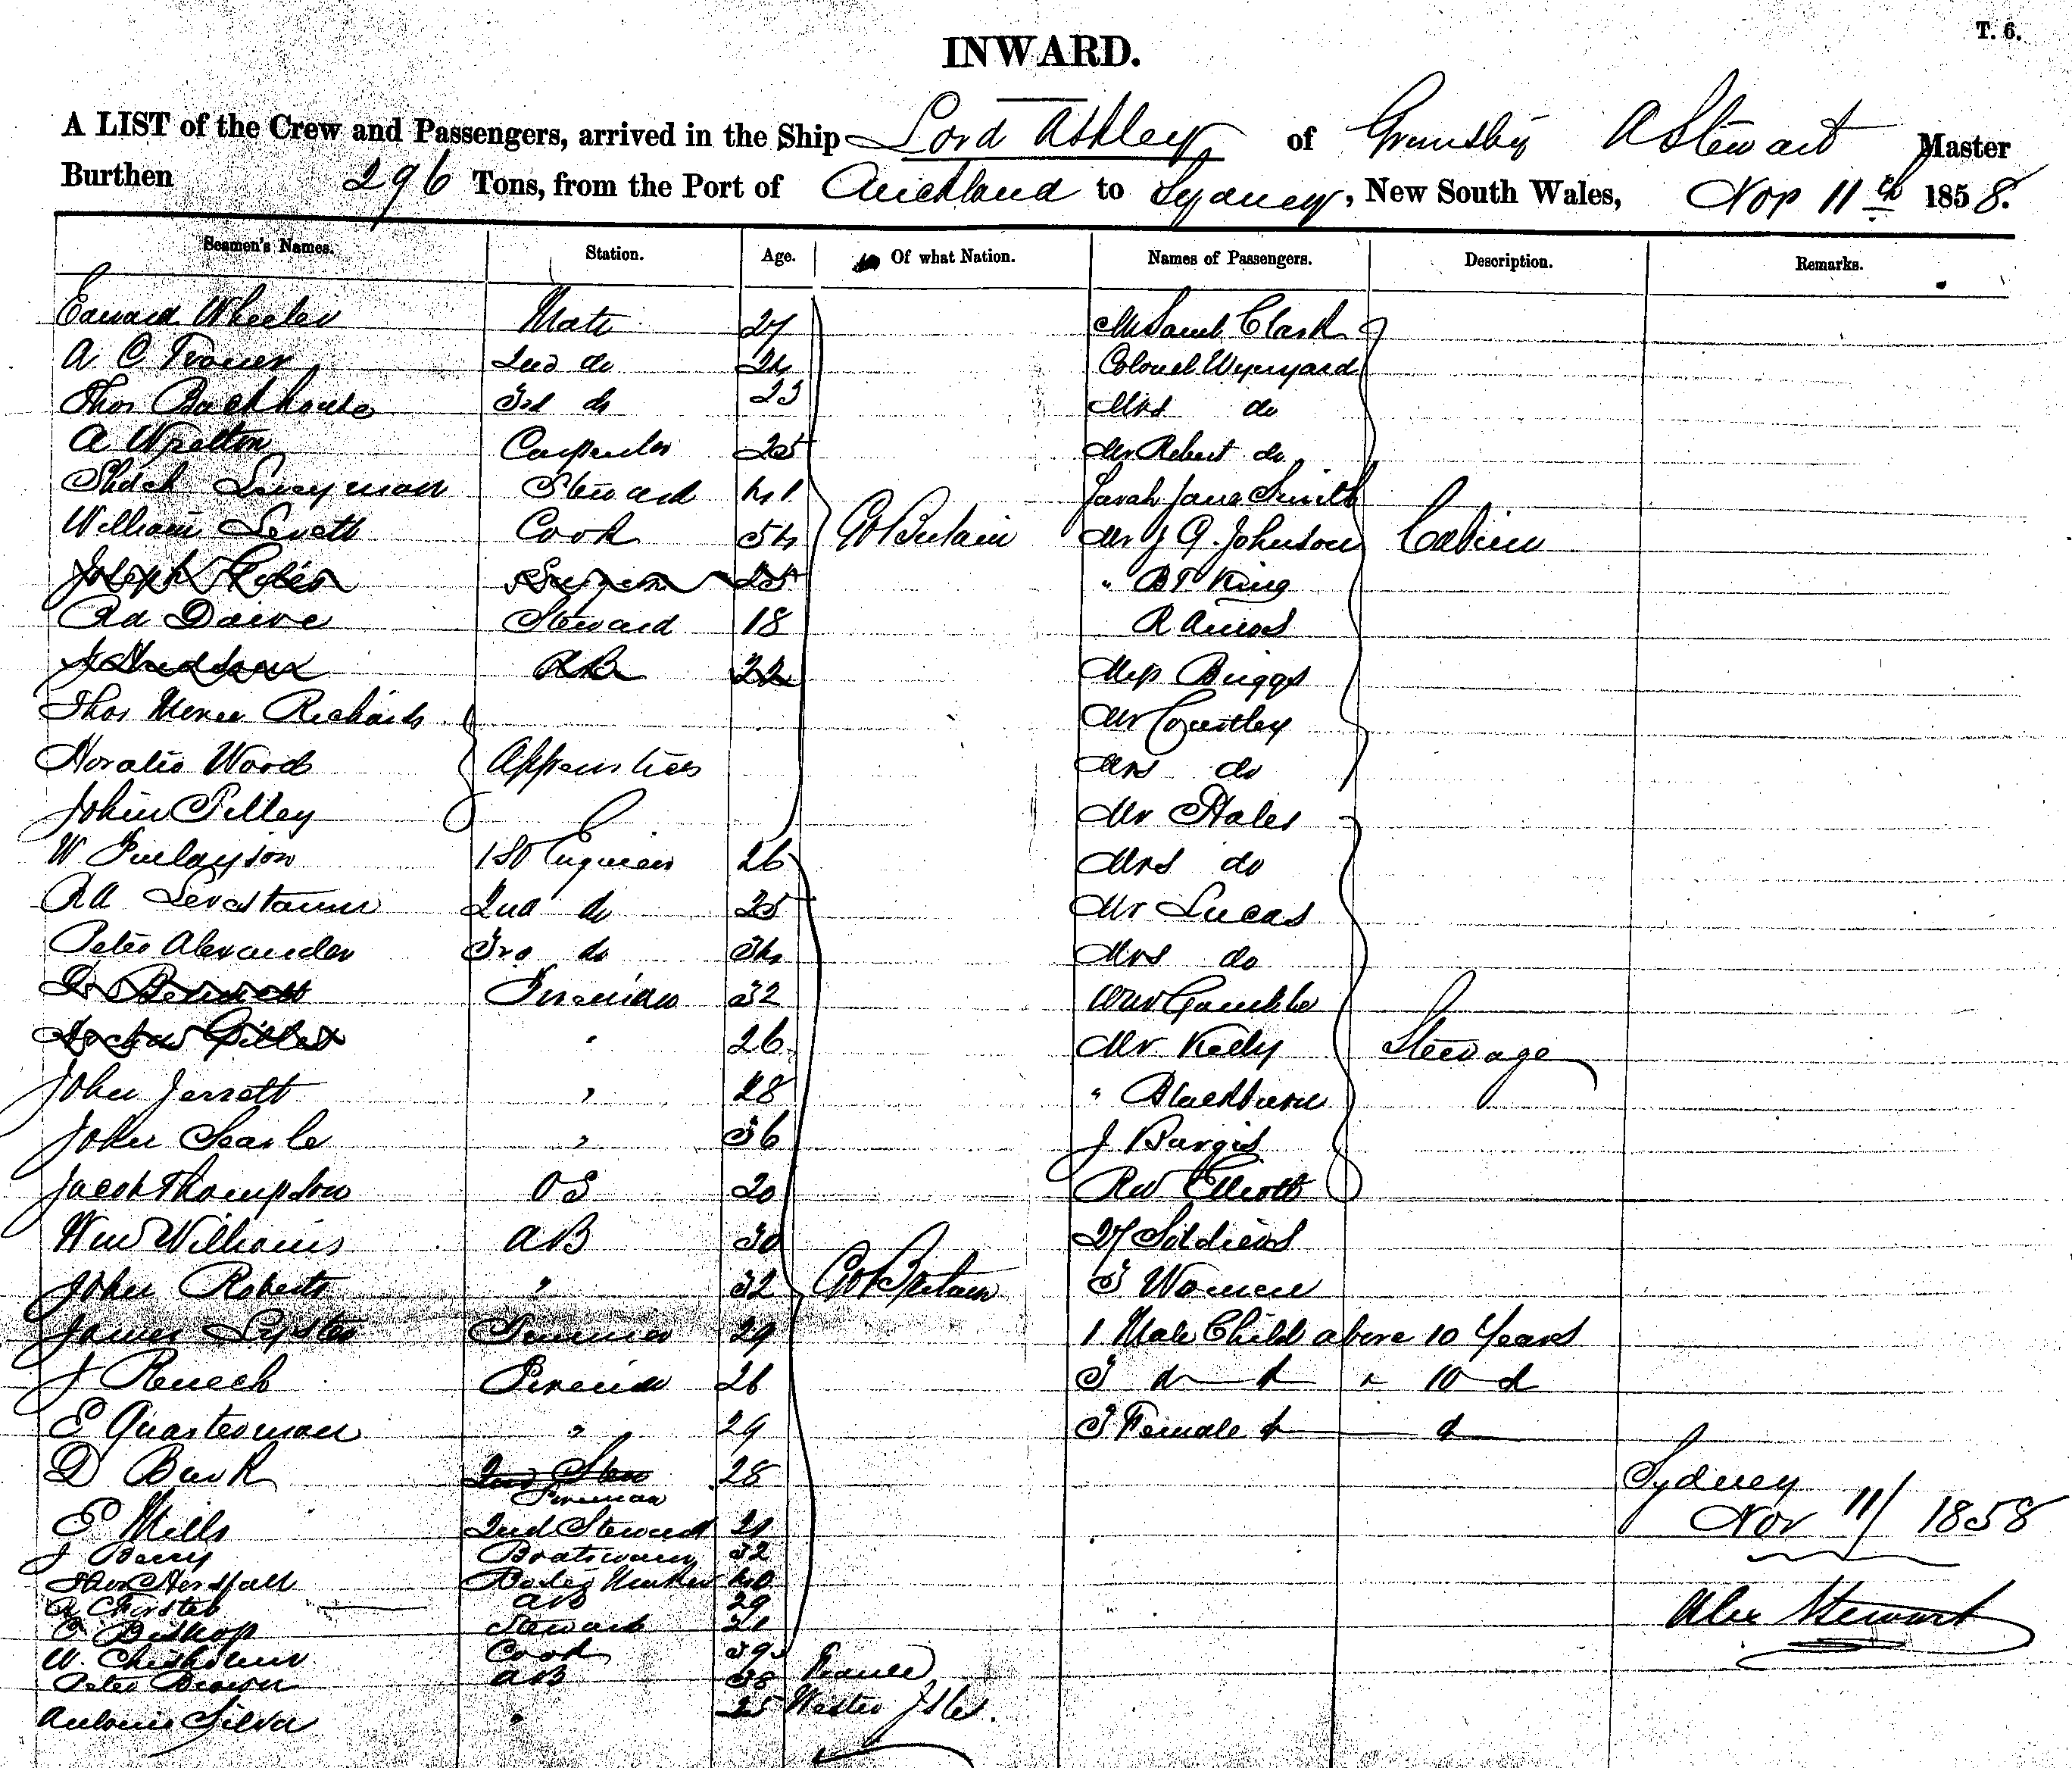 T. 6.
INWARD.
A LIST of the Crew and Passengers, arrived in the Ship Lord Ashley of Grimsby A Stewart Master
Burthen 296 Tons, from the Port of Auckland to Sydney, New South Wales, Nov 11th 1858.
Seamen's Names. Station. Age. Of what Nation. Names of Passengers. Description. Remarks.
Edward Wheeler Mate 27 Clark
A. C 2nd do 24 Colonel Wynyard
Thos Backhouse 3rd do 23 Mrs do
A Carpenter 25 Mr Robert do
Steward 41 Sarah Jane Smith
William Levett Cook 54 Gt Britain Mr J G. Johnson Cabin
Joseph 25 " B T King
Rd Steward 18 R Amos
AB 22 Miss Briggs
Thos Richards Mr
Horatio Wood Apprentices Mrs do
John Pilley Mr Hales
W Finlayson 1st Engineer 26 Mrs do
Rd 2nd do 25 Mr Lucas
Peter Alexander 3rd do 34 Mrs do
D Fireman 32 Wm Gamble
" 26 Mr Kelly Steerage
John Jerrett " 28 " Blackburne
John Searle " 36 J Burgis
Jacob Thompson OS 20 Elliott
Wm Williams AB 30 27 Soldiers
John Roberts " 32 Gt Britain 3 Women
James Lyster 29 1 Male Child above 10 Years
J Fireman 26 3 do do " 10 d
E Quarterman " 29 3 Female do do
D Bunk 2nd Stew 28 Sydney
Fireman
E Mills 2nd Steward 21 Nov 11/ 1858
J Berry Boatswain 32
Thos Horsfall Boiler Maker 40
AB 29 Alex Stewart
C Bishop Steward 21
W. Chisholm Cook 39
Peter Brown AB 38 France
Antonio Silva " 25 Western Isles.